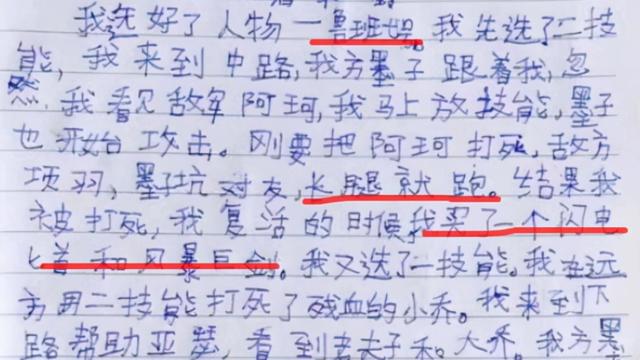 我选好了人物一鲁班号。我先选了二技
能,我来到中路,我方墨子跟着我,忽
然,我看见敌军阿珂,我马上放技能,墨子
也开始攻击。刚要把阿珂打死,敌方
项羽,墨子坑对友,长腿就跑。结果我
被打死,我复活的时候,我买了一个闪电
匕首和风暴巨剑。我又选了二技能。我在远
方用二技能打死了残血的小乔。我来到下
路帮助亚瑟,看到老夫子和大乔。我方墨